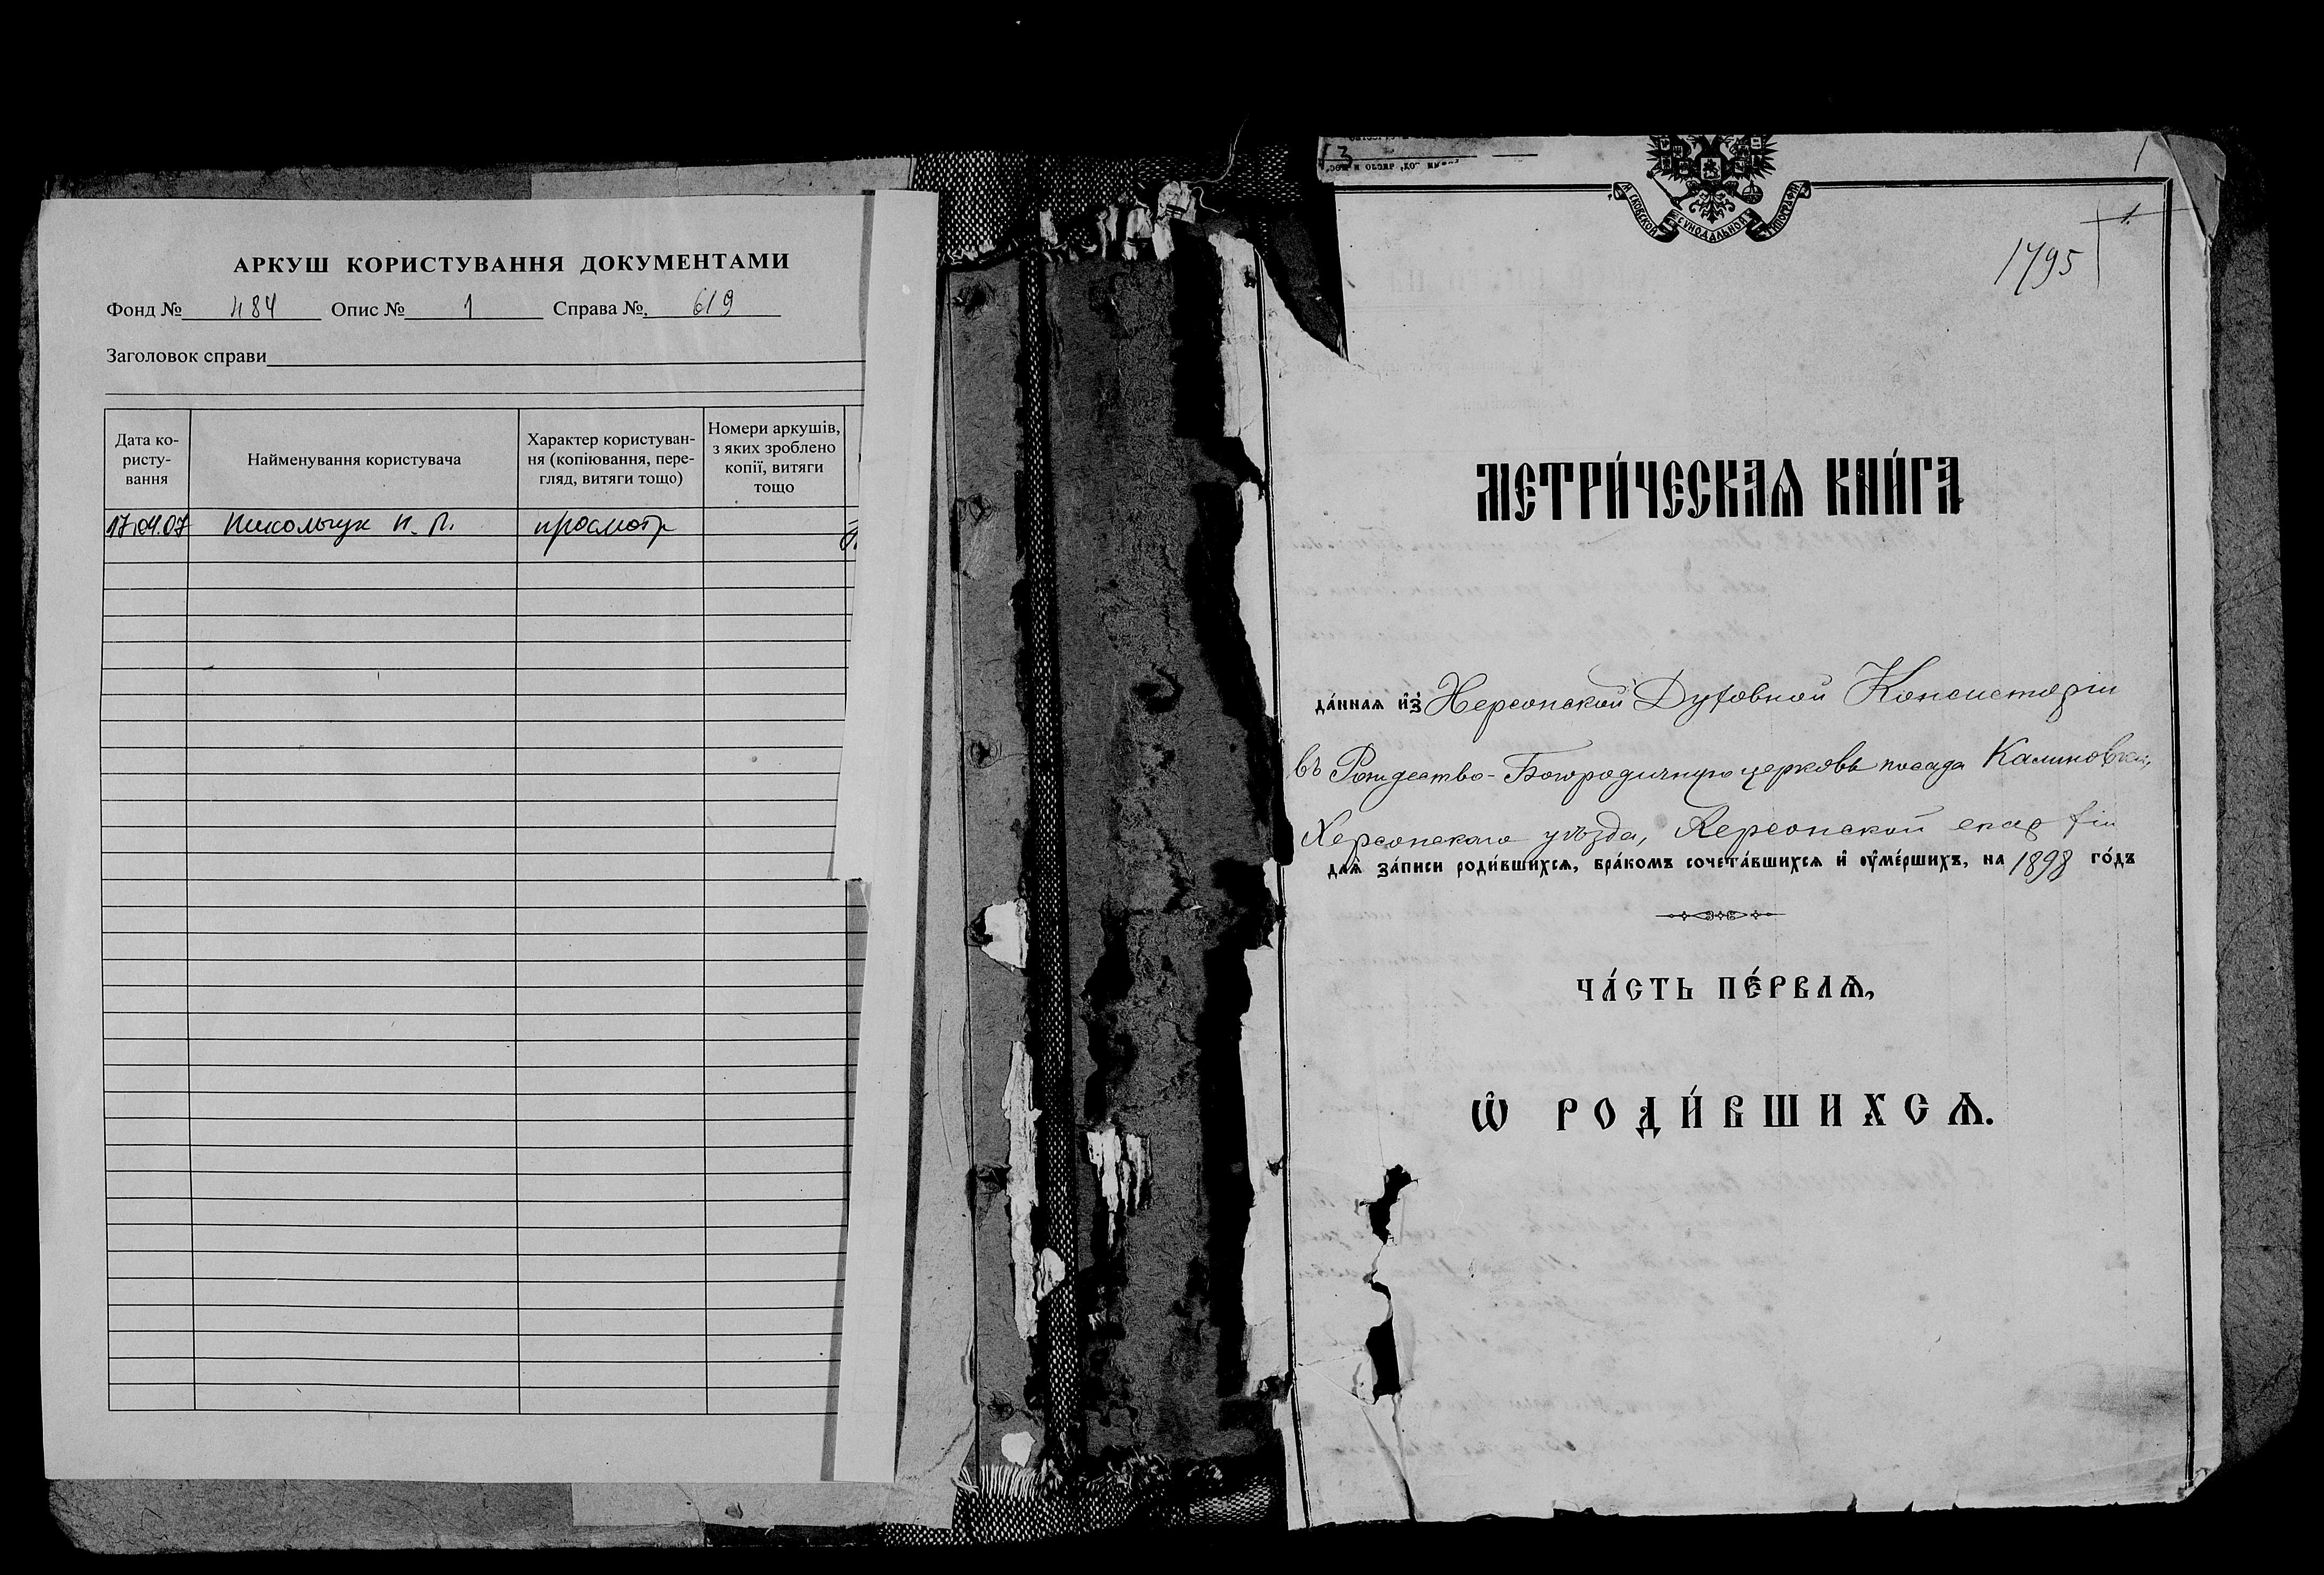 АРКУШ КОРИСТУВАННЯ ДОКУМЕНТАМИ
Фонд № 484 Опис № 1 Справа №. 619
Заголовок справи
Дата ко-
ристу-
вання
Найменування користувача
Характер користуван-
ня (копіювання, пере-
гляд, витяги тощо)
Номери аркушів,
з яких зроблено
копії, витяги
тощо
17.04.07 Никольчук Н. П. просмотр
3
1
1.
1795
СУНОДАЛЬНОЙ ТИПОГРАФІИ
МЕТРИ́ЧЕСКАѦ КНИ́ГА
да́ннаѧ и҆з̾ Херсонской Духовной Консисторіи
въ Рождество-Богородичную церковь посада Калиновки,
Херсонскаго уѣзда, Херсонской епархіи
длѧ̀ за́писи роди́вшихсѧ, бра́комъ сочета́вшихсѧ и҆ ᲂу҆ме́ршихъ, на 1898 го́дъ
ЧА́СТЬ ПЕ́РВАѦ,
Ѡ҆ РОДИ́ВШИХСѦ.